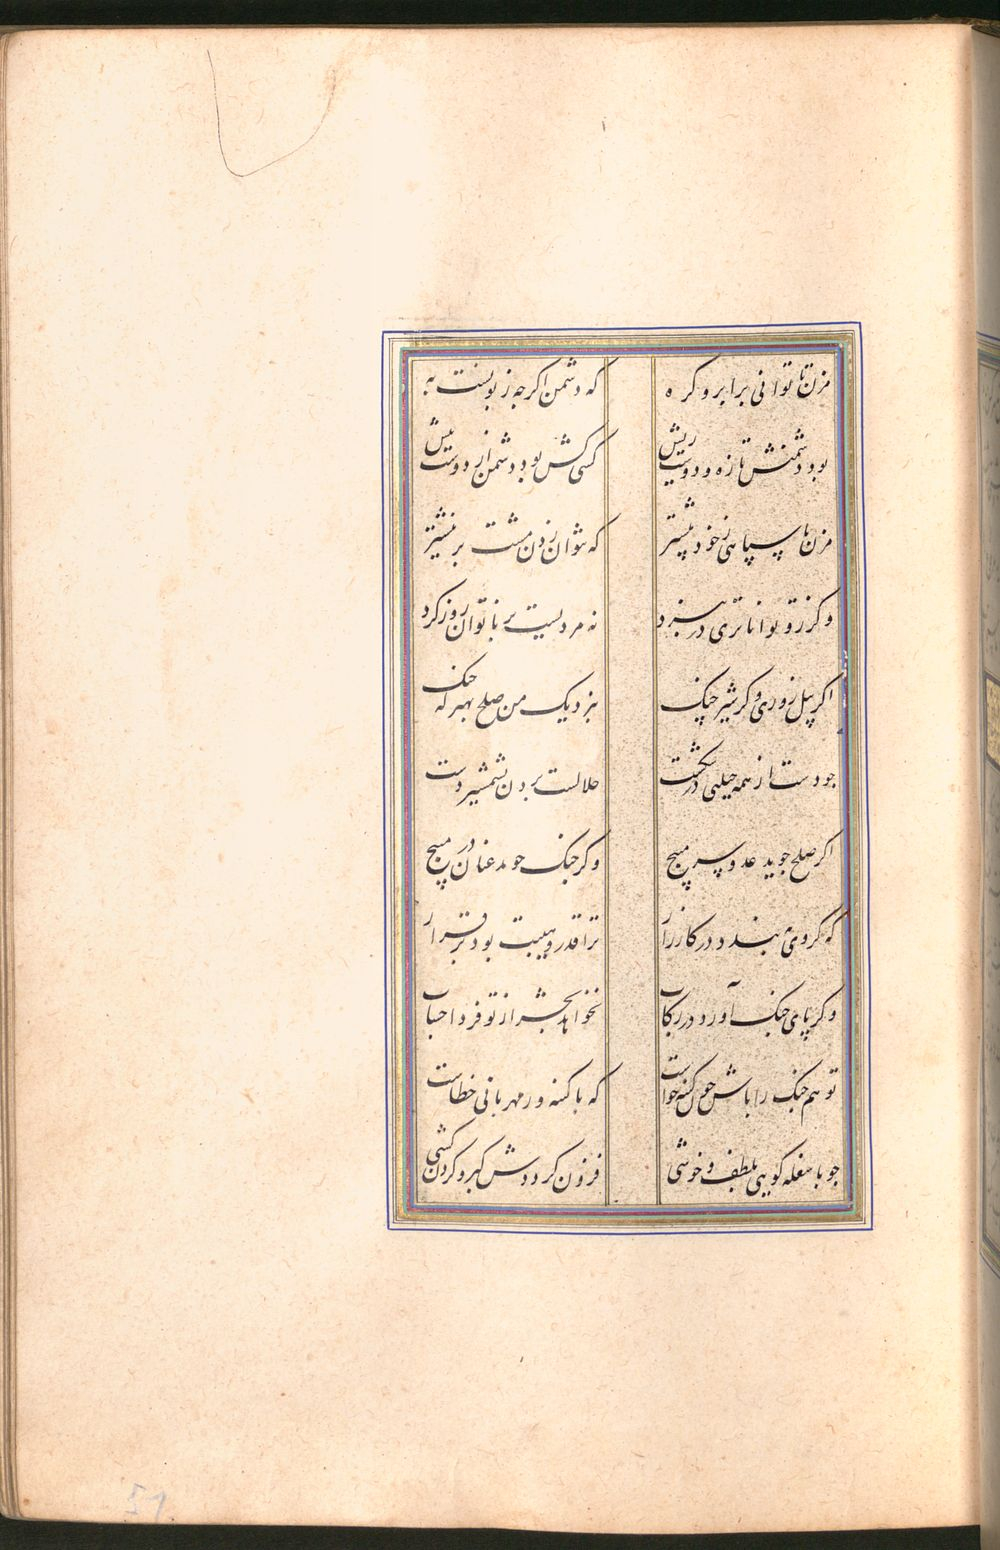 مزن تا توانی برابرو کره که دشمن اکرچه زبونست به
بود دشمنش تازه و دوست ریش کسی کش بود دشمن از دوست بیش
مزن با سپاهی زخود پیشتر که نتوان زدن مشت بر نیشتر
وکر زو تواناتری در نبرد نه مردیست بر ناتوان زور کرد
اکر پیل زوری وکر شیر چنک بنزدیک من صلح بهتر که جنک
چو دست از همه حیلتی در کسست حلالست بردن بشمشیر دست
اکر صلح جوید عدو سر مپیچ وکر جنک جوید عنان در مپیچ
که کر وی ببندد در کارزار ترا قدر و هیبت بود برقرار
وکر پای جنک آورد در رکاب نخواهد بحشر از تو فردا حساب
تو هم جنک را باش چون کینه خواست که با کینه ور مهربانی خطاست
چو با سفله کویی بلطف و خوشی فزون کرددش کبر و کردن کشی
51